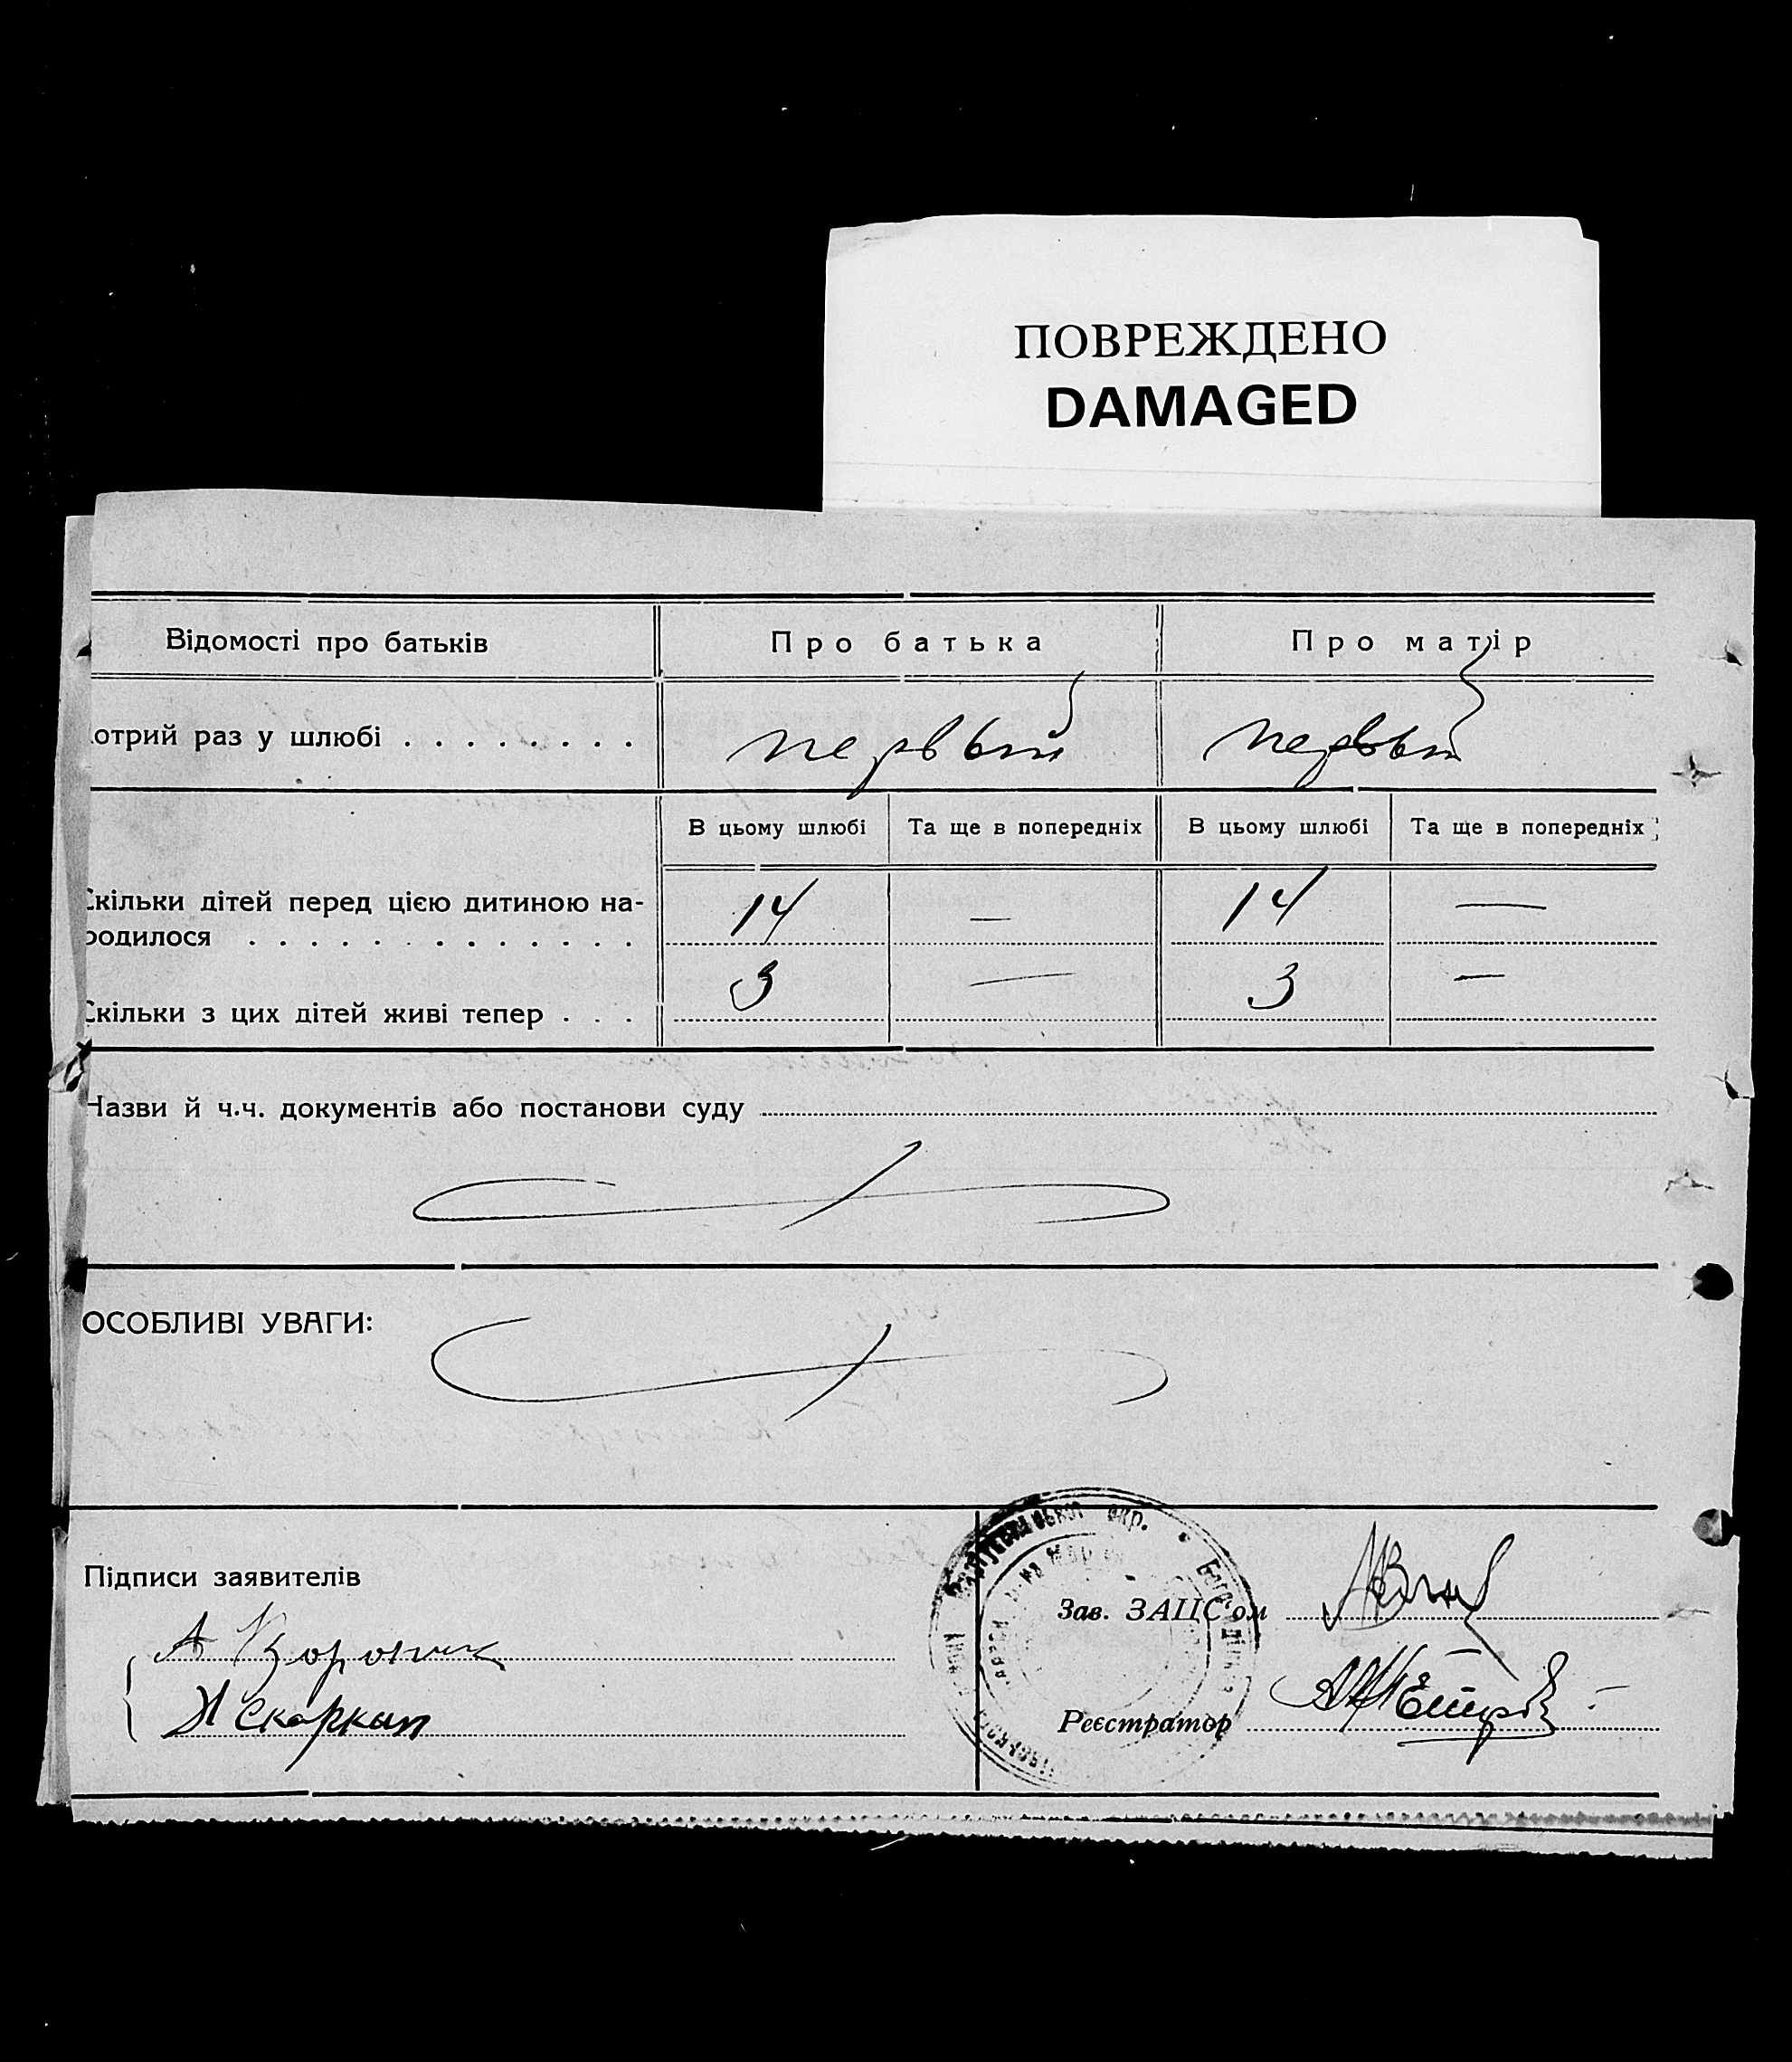 ПОВРЕЖДЕНО
DAMAGED
Відомості про батьків
Про батька
Про матір
отрий раз у шлюбі . . . . . . . .
первый
первый
В цьому шлюбі
Та ще в попередніх
В цьому шлюбі
Та ще в попередніх
Скільки дітей перед цією дитиною на-
родилося . . . . . . . . . . . . .
14
—
14
—
Скільки з цих дітей живі тепер . . .
3
—
3
—
Назви й ч.ч. документів або постанови суду
ОСОБЛИВІ УВАГИ:
окр.
Підписи заявителів
Зав. ЗАЦС'ом
А
Реєстратор